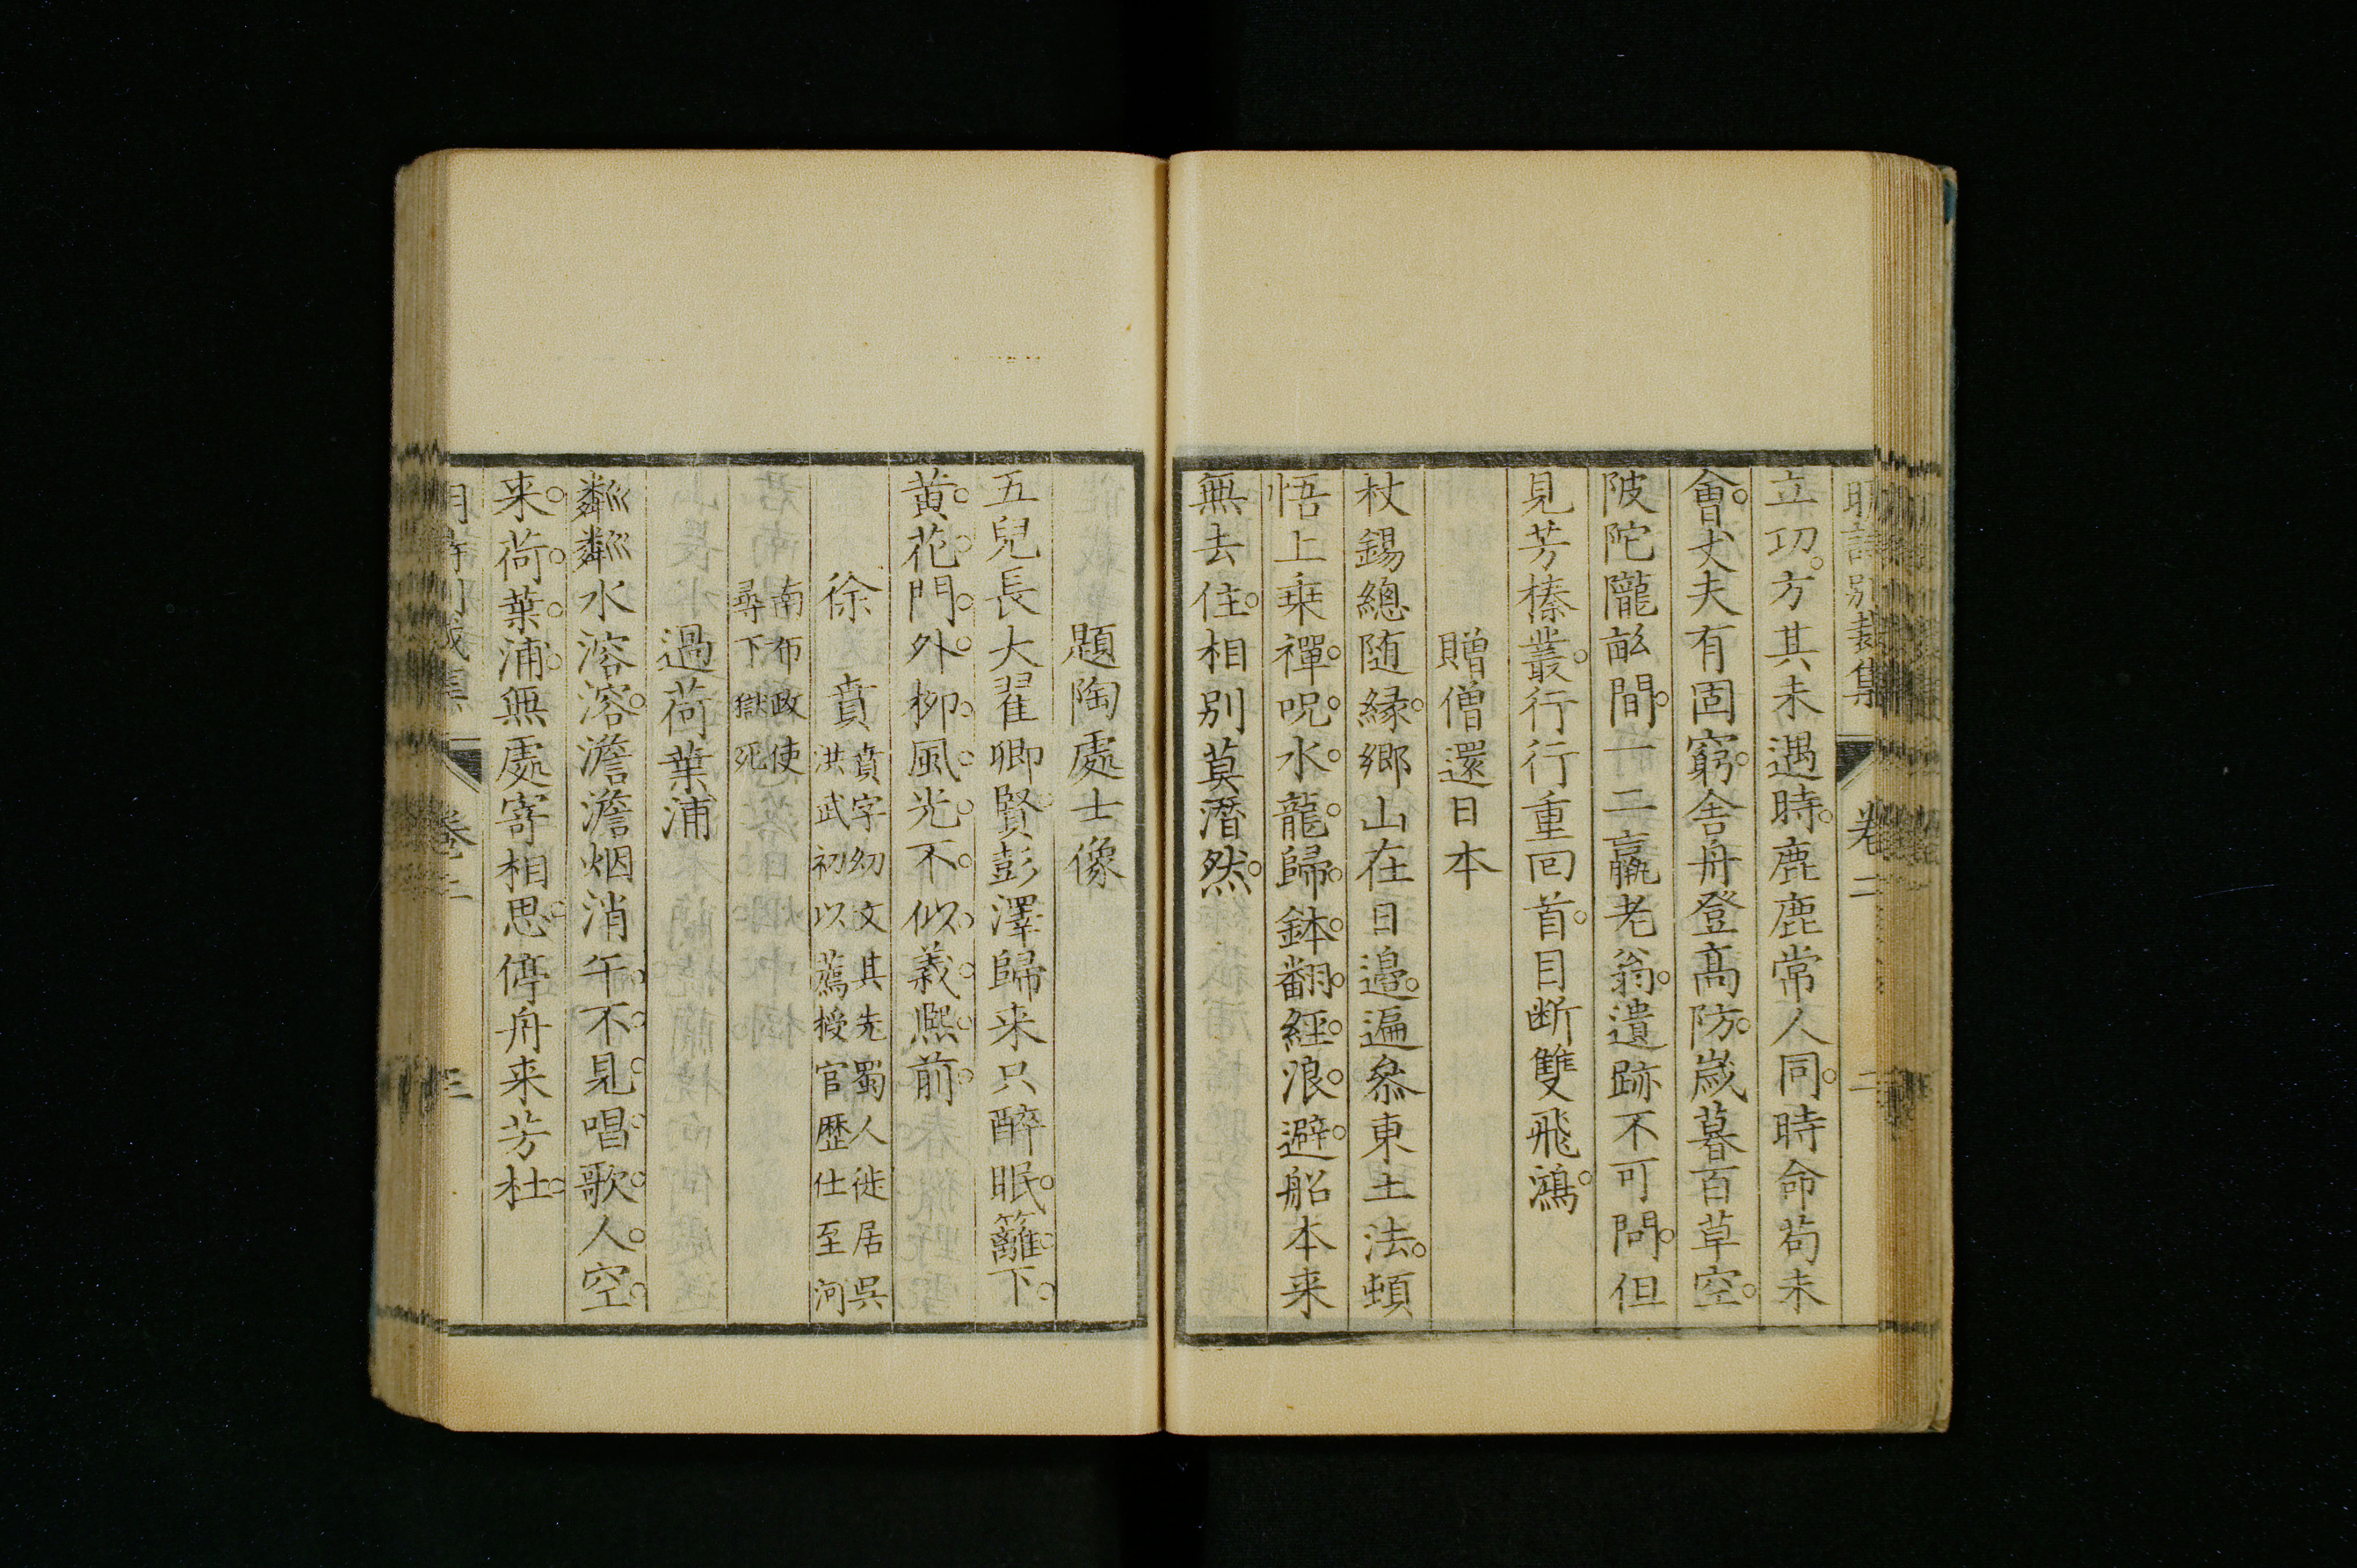 明詩別裁集 卷二 二
立功方其未遇時鹿鹿常人同時命苟未
會丈夫有固窮舍舟登高防歲暮百草空
陂陀隴畝間一二羸老翁遺跡不可問但
見芳榛叢行行重回首目断雙飛鴻
贈僧還日本
杖錫總随緣鄉山在日邉遍叅東土法頓
悟上乗禪呪水龍歸鉢翻經浪避船本来
無去住相別莫潸然
題陶處士像
五兒長大翟卿賢彭澤歸来只醉眠籬下
黄花門外柳風光不似義熈前
徐賁 賁字幼文其先蜀人徙居吳
洪武初以薦授官歴仕至河
南布政使
尋下獄死
過荷葉浦
粼粼水溶溶澹澹烟消午不見唱歌人空
来荷葉浦無處寄相思停舟来芳杜
卷二 三